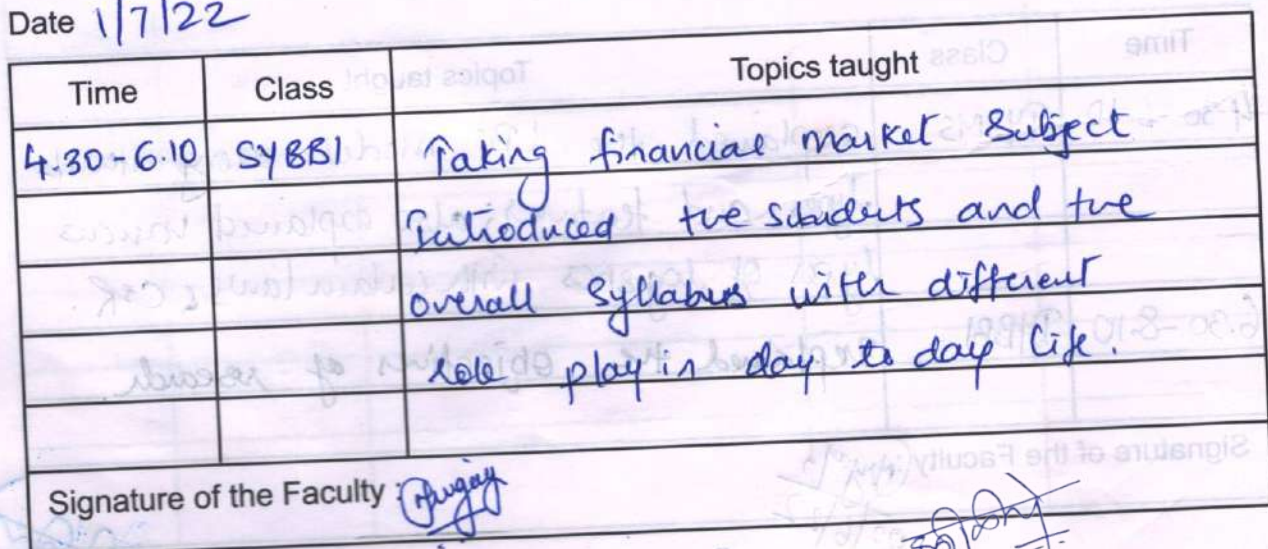 Date 1/7/22
Time Class Topics taught
4.30-6.10 SYBBI Taking financial market subject
Introduced the students and the
overall syllabus with different
role play in day to day life.
Signature of the Faculty :